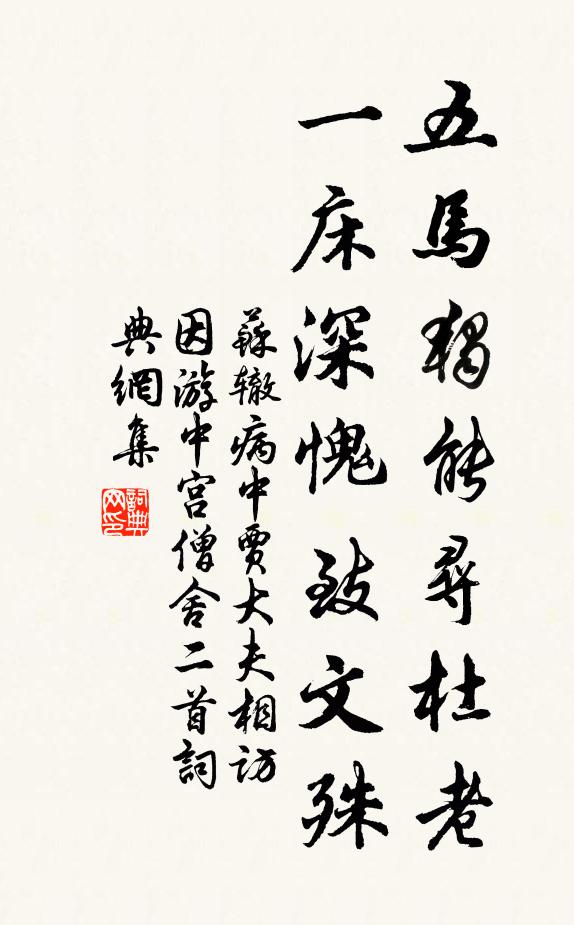 五馬獨能尋杜老
一床深愧致文殊
蘇轍病中賈大夫相訪
因游中宮僧舍二首詞
典網集
詞典网印